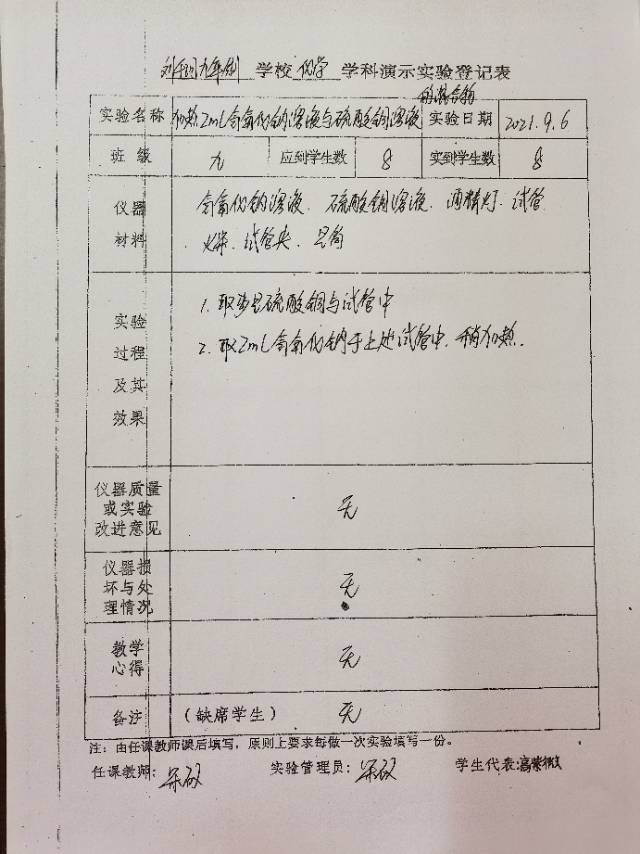 九年制 学校 化学 学科演示实验登记表
的混合物
实验名称 加热2mL氢氧化钠溶液与硫酸铜溶液 实验日期 2021.9.6
班级 九 应到学生数 8 实到学生数 8
仪器 氢氧化钠溶液、硫酸铜溶液、酒精灯、试管
材料 火柴、试管夹、
1. 取少量硫酸铜与试管中
实验
2. 取2mL氢氧化钠于上述试管中,稍加热。
过程
及其
效果
仪器质量
或实验 无
改进意见
仪器损
坏与处 无
理情况
教学
心得 无
备注 (缺席学生) 无
注:由任课教师课后填写,原则上要求每做一次实验填写一份。
任课教师: 实验管理员: 学生代表:高紫